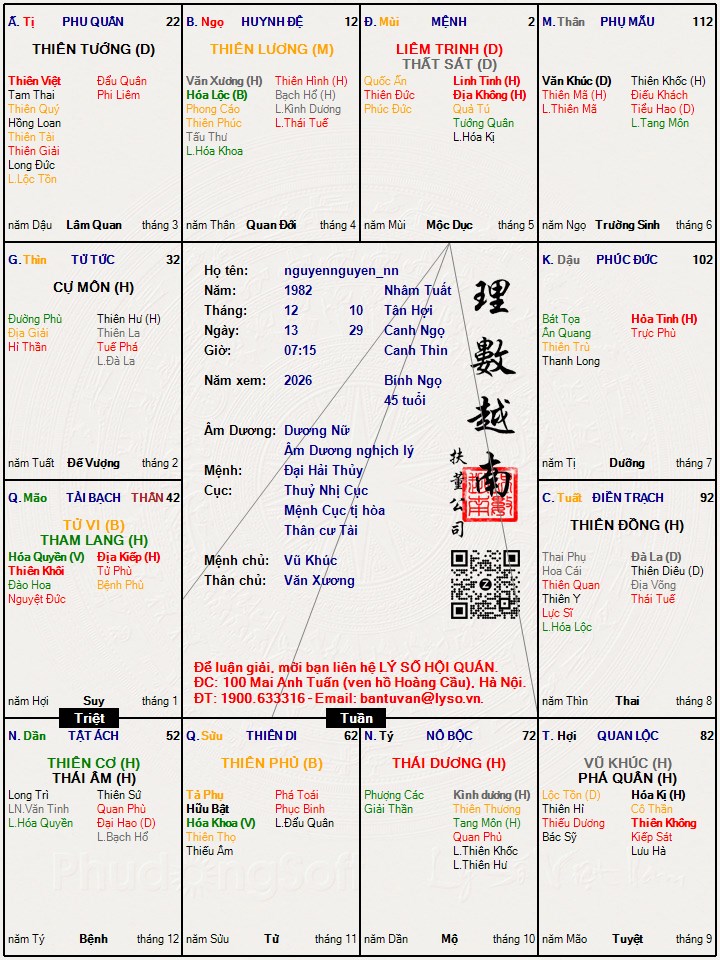 Ấ. Tị PHU QUÂN 22
THIÊN TƯỚNG (D)
Thiên Việt Đẩu Quân
Tam Thai Phi Liêm
Thiên Quý
Hồng Loan
Thiên Tài
Thiên Giải
Long Đức
L.Lộc Tồn
năm Dậu Lâm Quan tháng 3
B. Ngọ HUYNH ĐỆ 12
THIÊN LƯƠNG (M)
Văn Xương (H) Thiên Hình (H)
Hóa Lộc (B) Bạch Hổ (H)
Phong Cáo L.Kình Dương
Thiên Phúc L.Thái Tuế
Tấu Thư
L.Hóa Khoa
năm Thân Quan Đới tháng 4
Đ. Mùi MỆNH 2
LIÊM TRINH (D)
THẤT SÁT (D)
Quốc Ấn Linh Tinh (H)
Thiên Đức Địa Không (H)
Phúc Đức Quả Tú
Tướng Quân
L.Hóa Kị
năm Mùi Mộc Dục tháng 5
M. Thân PHỤ MẪU 112
Văn Khúc (D) Thiên Khốc (H)
Thiên Mã (H) Điếu Khách
L.Thiên Mã Tiểu Hao (D)
L.Tang Môn
năm Ngọ Trường Sinh tháng 6
G. Thìn TỬ TỨC 32
CỰ MÔN (H)
Đường Phù Thiên Hư (H)
Địa Giải Thiên La
Hỉ Thần Tuế Phá
L.Đà La
năm Tuất Đế Vượng tháng 2
Họ tên: nguyennguyen_nn
Năm: 1982 Nhâm Tuất
Tháng: 12 10 Tân Hợi
Ngày: 13 29 Canh Ngọ
Giờ: 07:15 Canh Thìn
Năm xem: 2026 Bính Ngọ
45 tuổi
Âm Dương: Dương Nữ
Âm Dương nghịch lý
Mệnh: Đại Hải Thủy
Cục: Thuỷ Nhị Cục
Mệnh Cục tị hòa
Thân cư Tài
Mệnh chủ: Vũ Khúc
Thân chủ: Văn Xương
理數越南
扶董公司
Để luận giải, mời bạn liên hệ LÝ SỐ HỘI QUÁN.
ĐC: 100 Mai Anh Tuấn (ven hồ Hoàng Cầu), Hà Nội.
ĐT: 1900.633316 - Email: bantuvan@lyso.vn.
K. Dậu PHÚC ĐỨC 102
Bát Tọa Hỏa Tinh (H)
Ân Quang Trực Phù
Thiên Trù
Thanh Long
năm Tị Dưỡng tháng 7
Q. Mão TÀI BẠCH THÂN 42
TỬ VI (B)
THAM LANG (H)
Hóa Quyền (V) Địa Kiếp (H)
Thiên Khôi Tử Phù
Đào Hoa Bệnh Phù
Nguyệt Đức
năm Hợi Suy tháng 1
C. Tuất ĐIỀN TRẠCH 92
THIÊN ĐỒNG (H)
Thai Phụ Đà La (D)
Hoa Cái Thiên Diêu (D)
Thiên Quan Địa Võng
Thiên Y Thái Tuế
Lực Sĩ
L.Hóa Lộc
năm Thìn Thai tháng 8
Triệt
Tuần
N. Dần TẬT ÁCH 52
THIÊN CƠ (H)
THÁI ÂM (H)
Long Trì Thiên Sứ
LN.Văn Tinh Quan Phù
L.Hóa Quyền Đại Hao (D)
L.Bạch Hổ
năm Tý Bệnh tháng 12
Q. Sửu THIÊN DI 62
THIÊN PHỦ (B)
Tả Phụ Phá Toái
Hữu Bật Phục Binh
Hóa Khoa (V) L.Đẩu Quân
Thiên Thọ
Thiếu Âm
năm Sửu Tử tháng 11
N. Tý NÔ BỘC 72
THÁI DƯƠNG (H)
Phượng Các Kình dương (H)
Giải Thần Thiên Thương
Tang Môn (H)
Quan Phủ
L.Thiên Khốc
L.Thiên Hư
năm Dần Mộ tháng 10
T. Hợi QUAN LỘC 82
VŨ KHÚC (H)
PHÁ QUÂN (H)
Lộc Tồn (D) Hóa Kị (H)
Thiên Hỉ Cô Thần
Thiếu Dương Thiên Không
Bác Sỹ Kiếp Sát
Lưu Hà
năm Mão Tuyệt tháng 9